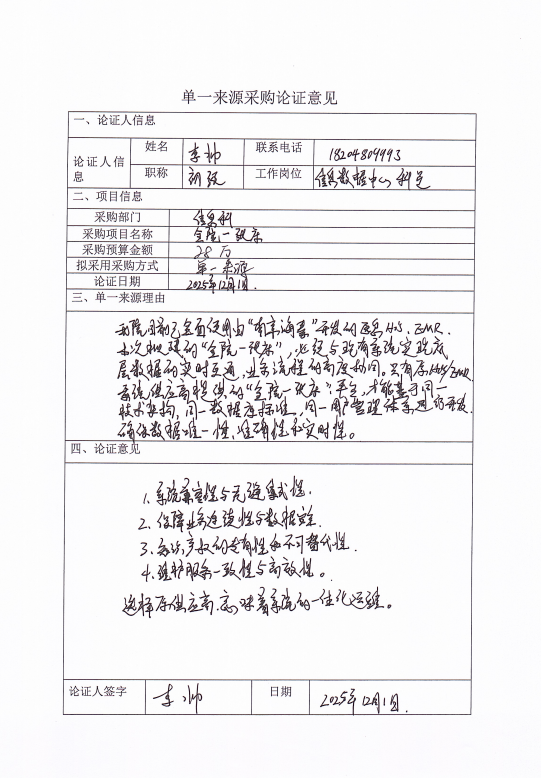 单一来源采购论证意见
一、论证人信息
论证人信息 姓名 李帅 联系电话 18204809993
职称 初级 工作岗位 信息数据中心 科员
二、项目信息
采购部门 信息科
采购项目名称 全院一张床
采购预算金额 28万
拟采用采购方式 单一来源
论证日期 2025年12月1日.
三、单一来源理由
我院目前已全面使用由“南京海泰”开发的医院HIS、EMR.
本次拟建的“全院一张床”，必须与现有系统实现底
层数据的实时互通，业务流程的高度协同。只有原HIS/EMR
系统供应商提供的“全院一张床”平台，才能基于同一
技术架构，同一数据库标准，同一用户管理体系进行开发.
确保数据唯一性，准确性和实时性。
四、论证意见
1.系统兼容性与无缝集成性.
2.保障业务连续性与数据安全.
3.知识产权的专有性和不可替代性.
4.维护服务一致性与高效性。
选择原供应商，意味着系统的一体化运维。
论证人签字 李帅 日期 2025年12月1日.